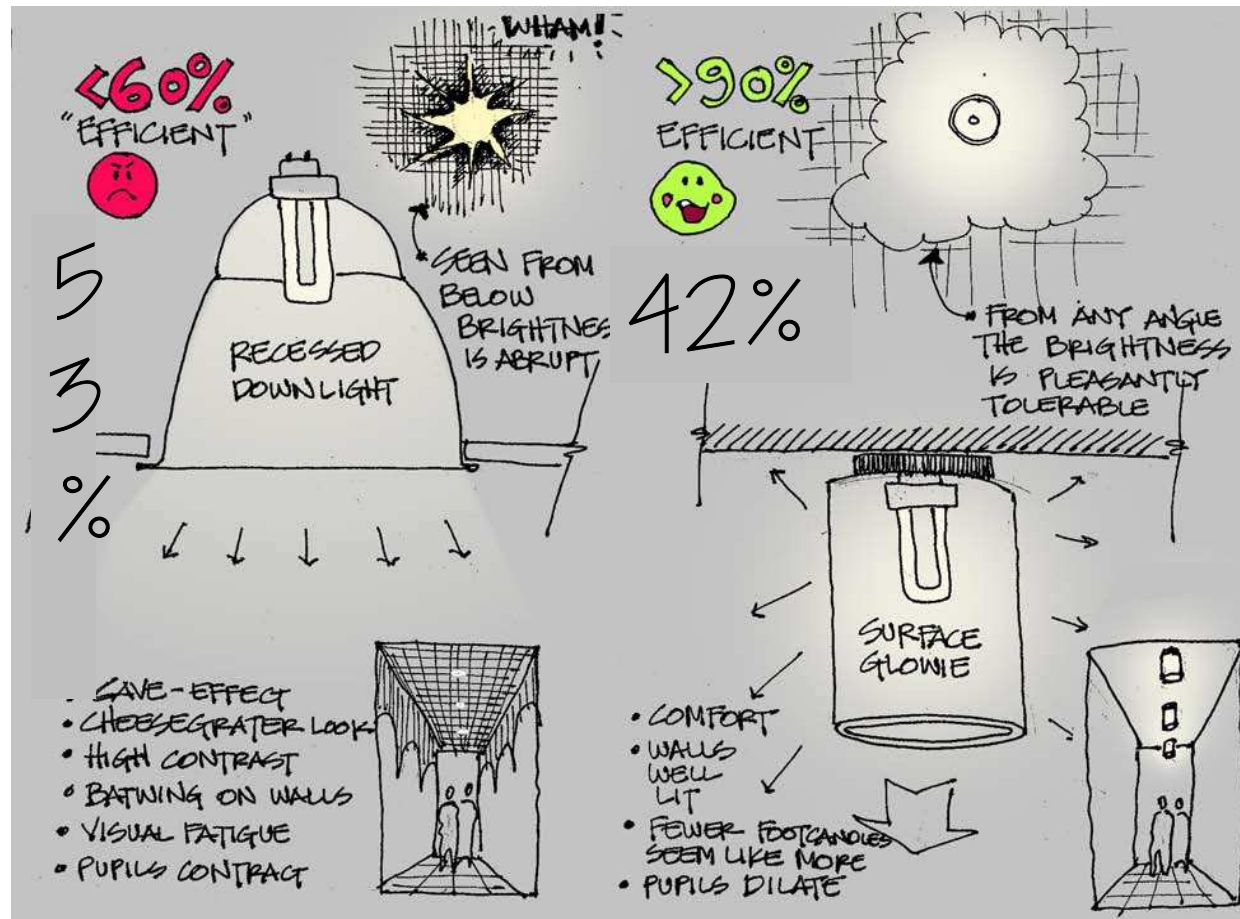 <60%
"EFFICIENT"
WHAM!
5
3
%
SEEN FROM
BELOW
BRIGHTNES
IS ABRUPT
RECESSED
DOWNLIGHT
• CAVE-EFFECT
• CHEESEGRATER LOOK
• HIGH CONTRAST
• BATWING ON WALLS
• VISUAL FATIGUE
• PUPILS CONTRACT
>90%
EFFICIENT
42%
• FROM ANY ANGLE
THE BRIGHTNESS
IS PLEASANTLY
TOLERABLE
SURFACE
GLOWIE
• COMFORT
• WALLS
WELL
LIT
• FEWER FOOTCANDLES
SEEM LIKE MORE
• PUPILS DILATE